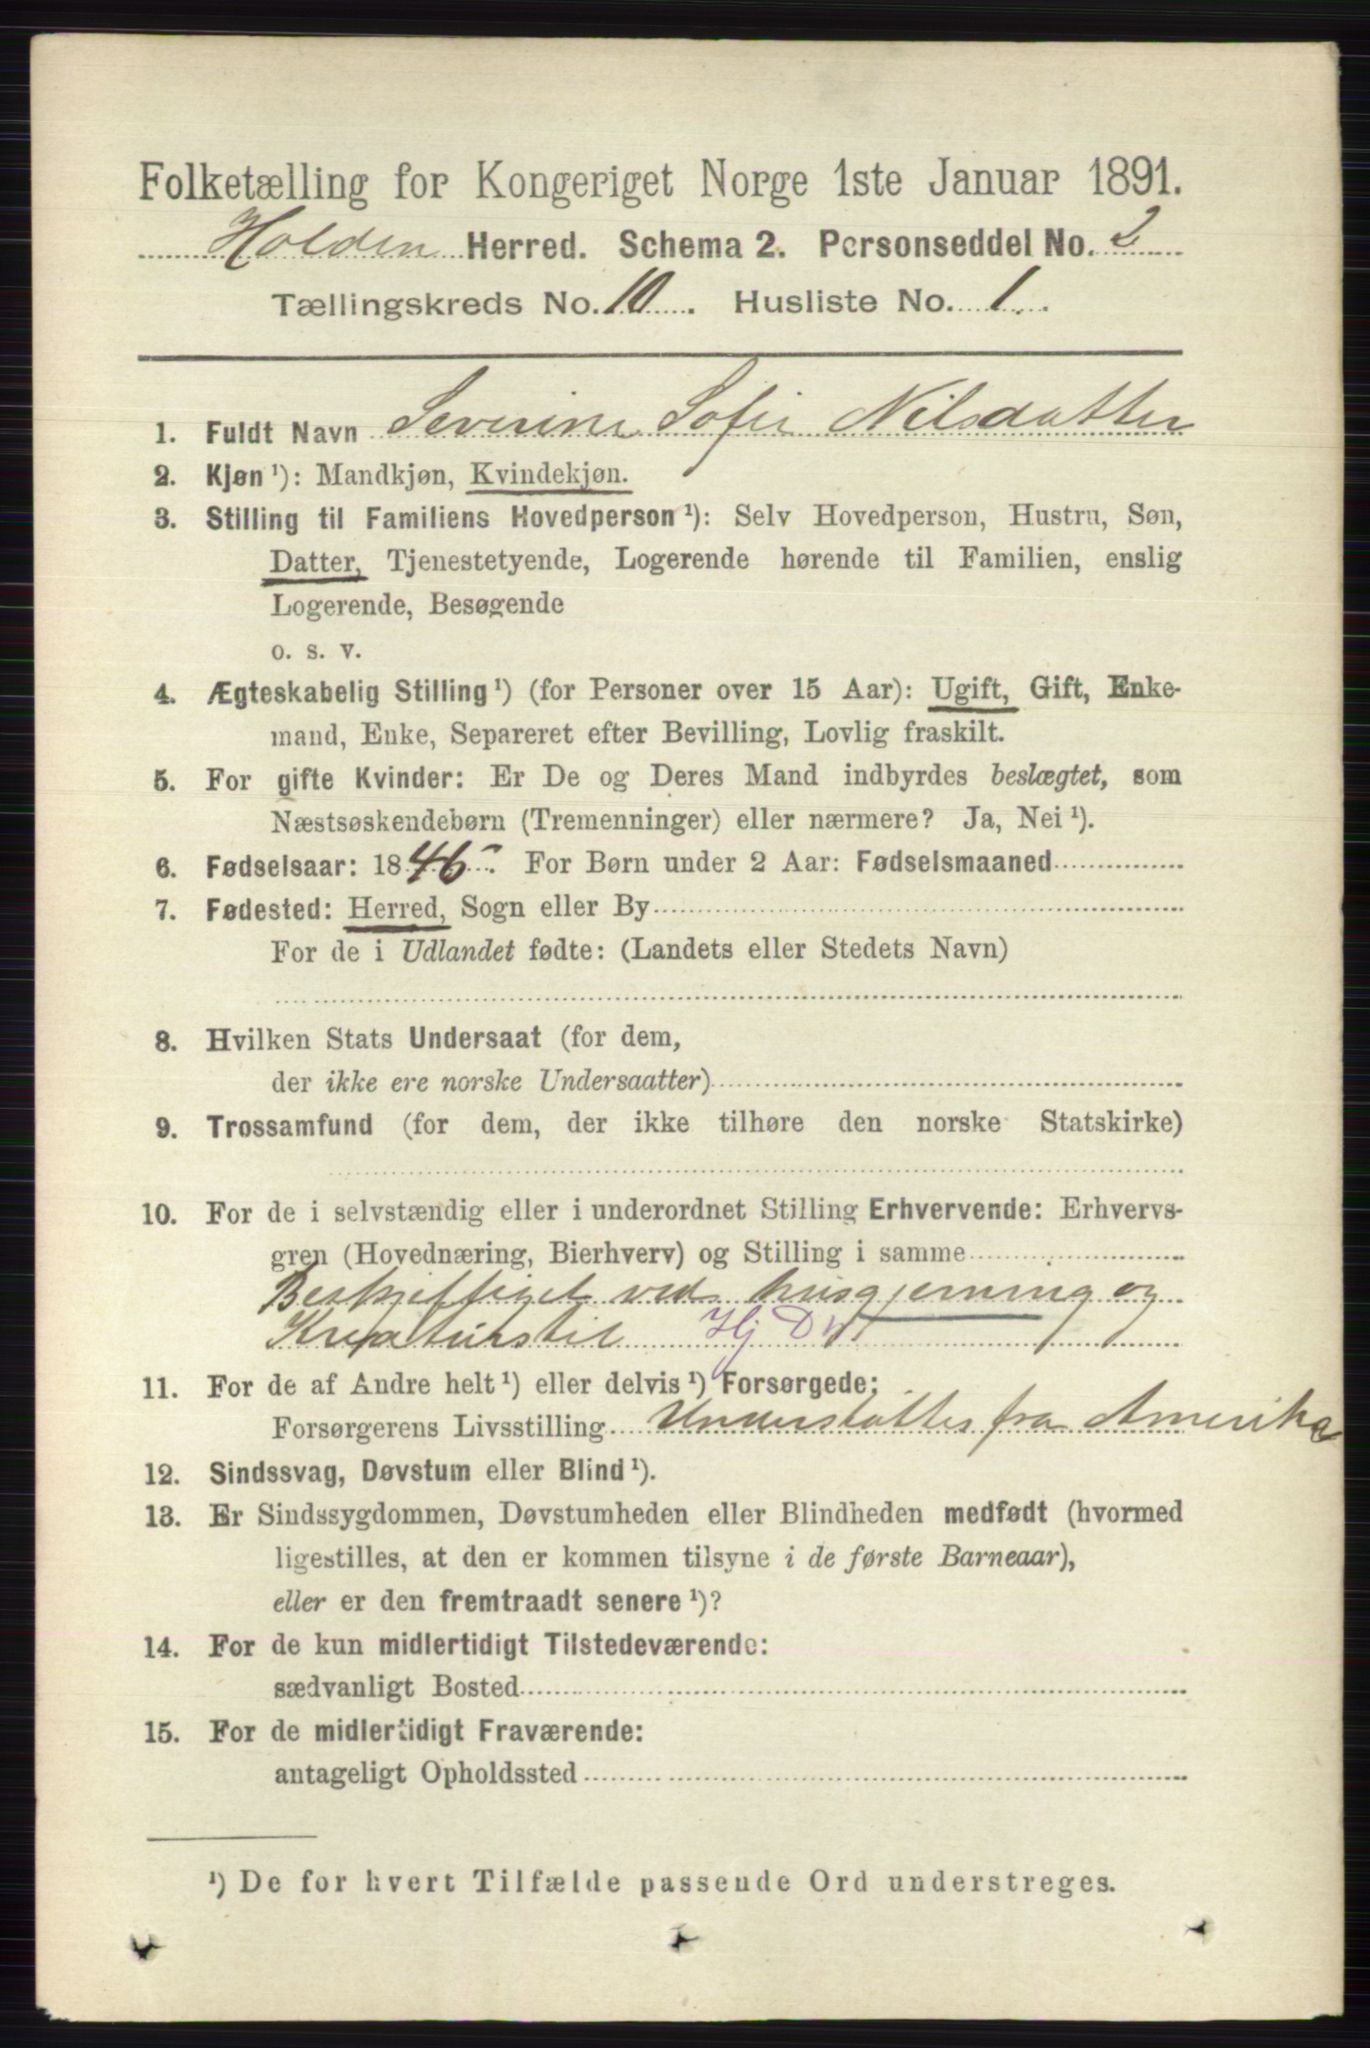 Folketælling for Kongeriget Norge 1ste Januar 1891.
Holden Herred. Schema 2. Personseddel No. 2
Tællingskreds No. 10. Husliste No. 1.
1. Fuldt Navn Severine Sofie Nilsdatter
2. Kjøn ¹): Mandkjøn, Kvindekjøn.
3. Stilling til Familiens Hovedperson ¹): Selv Hovedperson, Hustru, Søn,
Datter, Tjenestetyende, Logerende hørende til Familien, enslig
Logerende, Besøgende
o. s. v.
4. Ægteskabelig Stilling ¹) (for Personer over 15 Aar): Ugift, Gift, Enke-
mand, Enke, Separeret efter Bevilling, Lovlig fraskilt.
5. For gifte Kvinder: Er De og Deres Mand indbyrdes beslægtet, som
Næstsøskendebørn (Tremenninger) eller nærmere? Ja, Nei ¹).
6. Fødselsaar: 1846. For Børn under 2 Aar: Fødselsmaaned
7. Fødested: Herred, Sogn eller By
For de i Udlandet fødte: (Landets eller Stedets Navn)
8. Hvilken Stats Undersaat (for dem,
der ikke ere norske Undersaatter)
9. Trossamfund (for dem, der ikke tilhøre den norske Statskirke)
10. For de i selvstændig eller i underordnet Stilling Erhvervende: Erhvervs-
gren (Hovednæring, Bierhverv) og Stilling i samme
Beskjeftiget ved husgjerning og
Kreaturstel Hj
11. For de af Andre helt ¹) eller delvis ¹) Forsørgede:
Forsørgerens Livsstilling Understøttes fra Amerika
12. Sindssvag, Døvstum eller Blind ¹).
13. Er Sindssygdommen, Døvstumheden eller Blindheden medfødt (hvormed
ligestilles, at den er kommen tilsyne i de første Barneaar),
eller er den fremtraadt senere ¹)?
14. For de kun midlertidigt Tilstedeværende:
sædvanligt Bosted
15. For de midlertidigt Fraværende:
antageligt Opholdssted
¹) De for hvert Tilfælde passende Ord understreges.